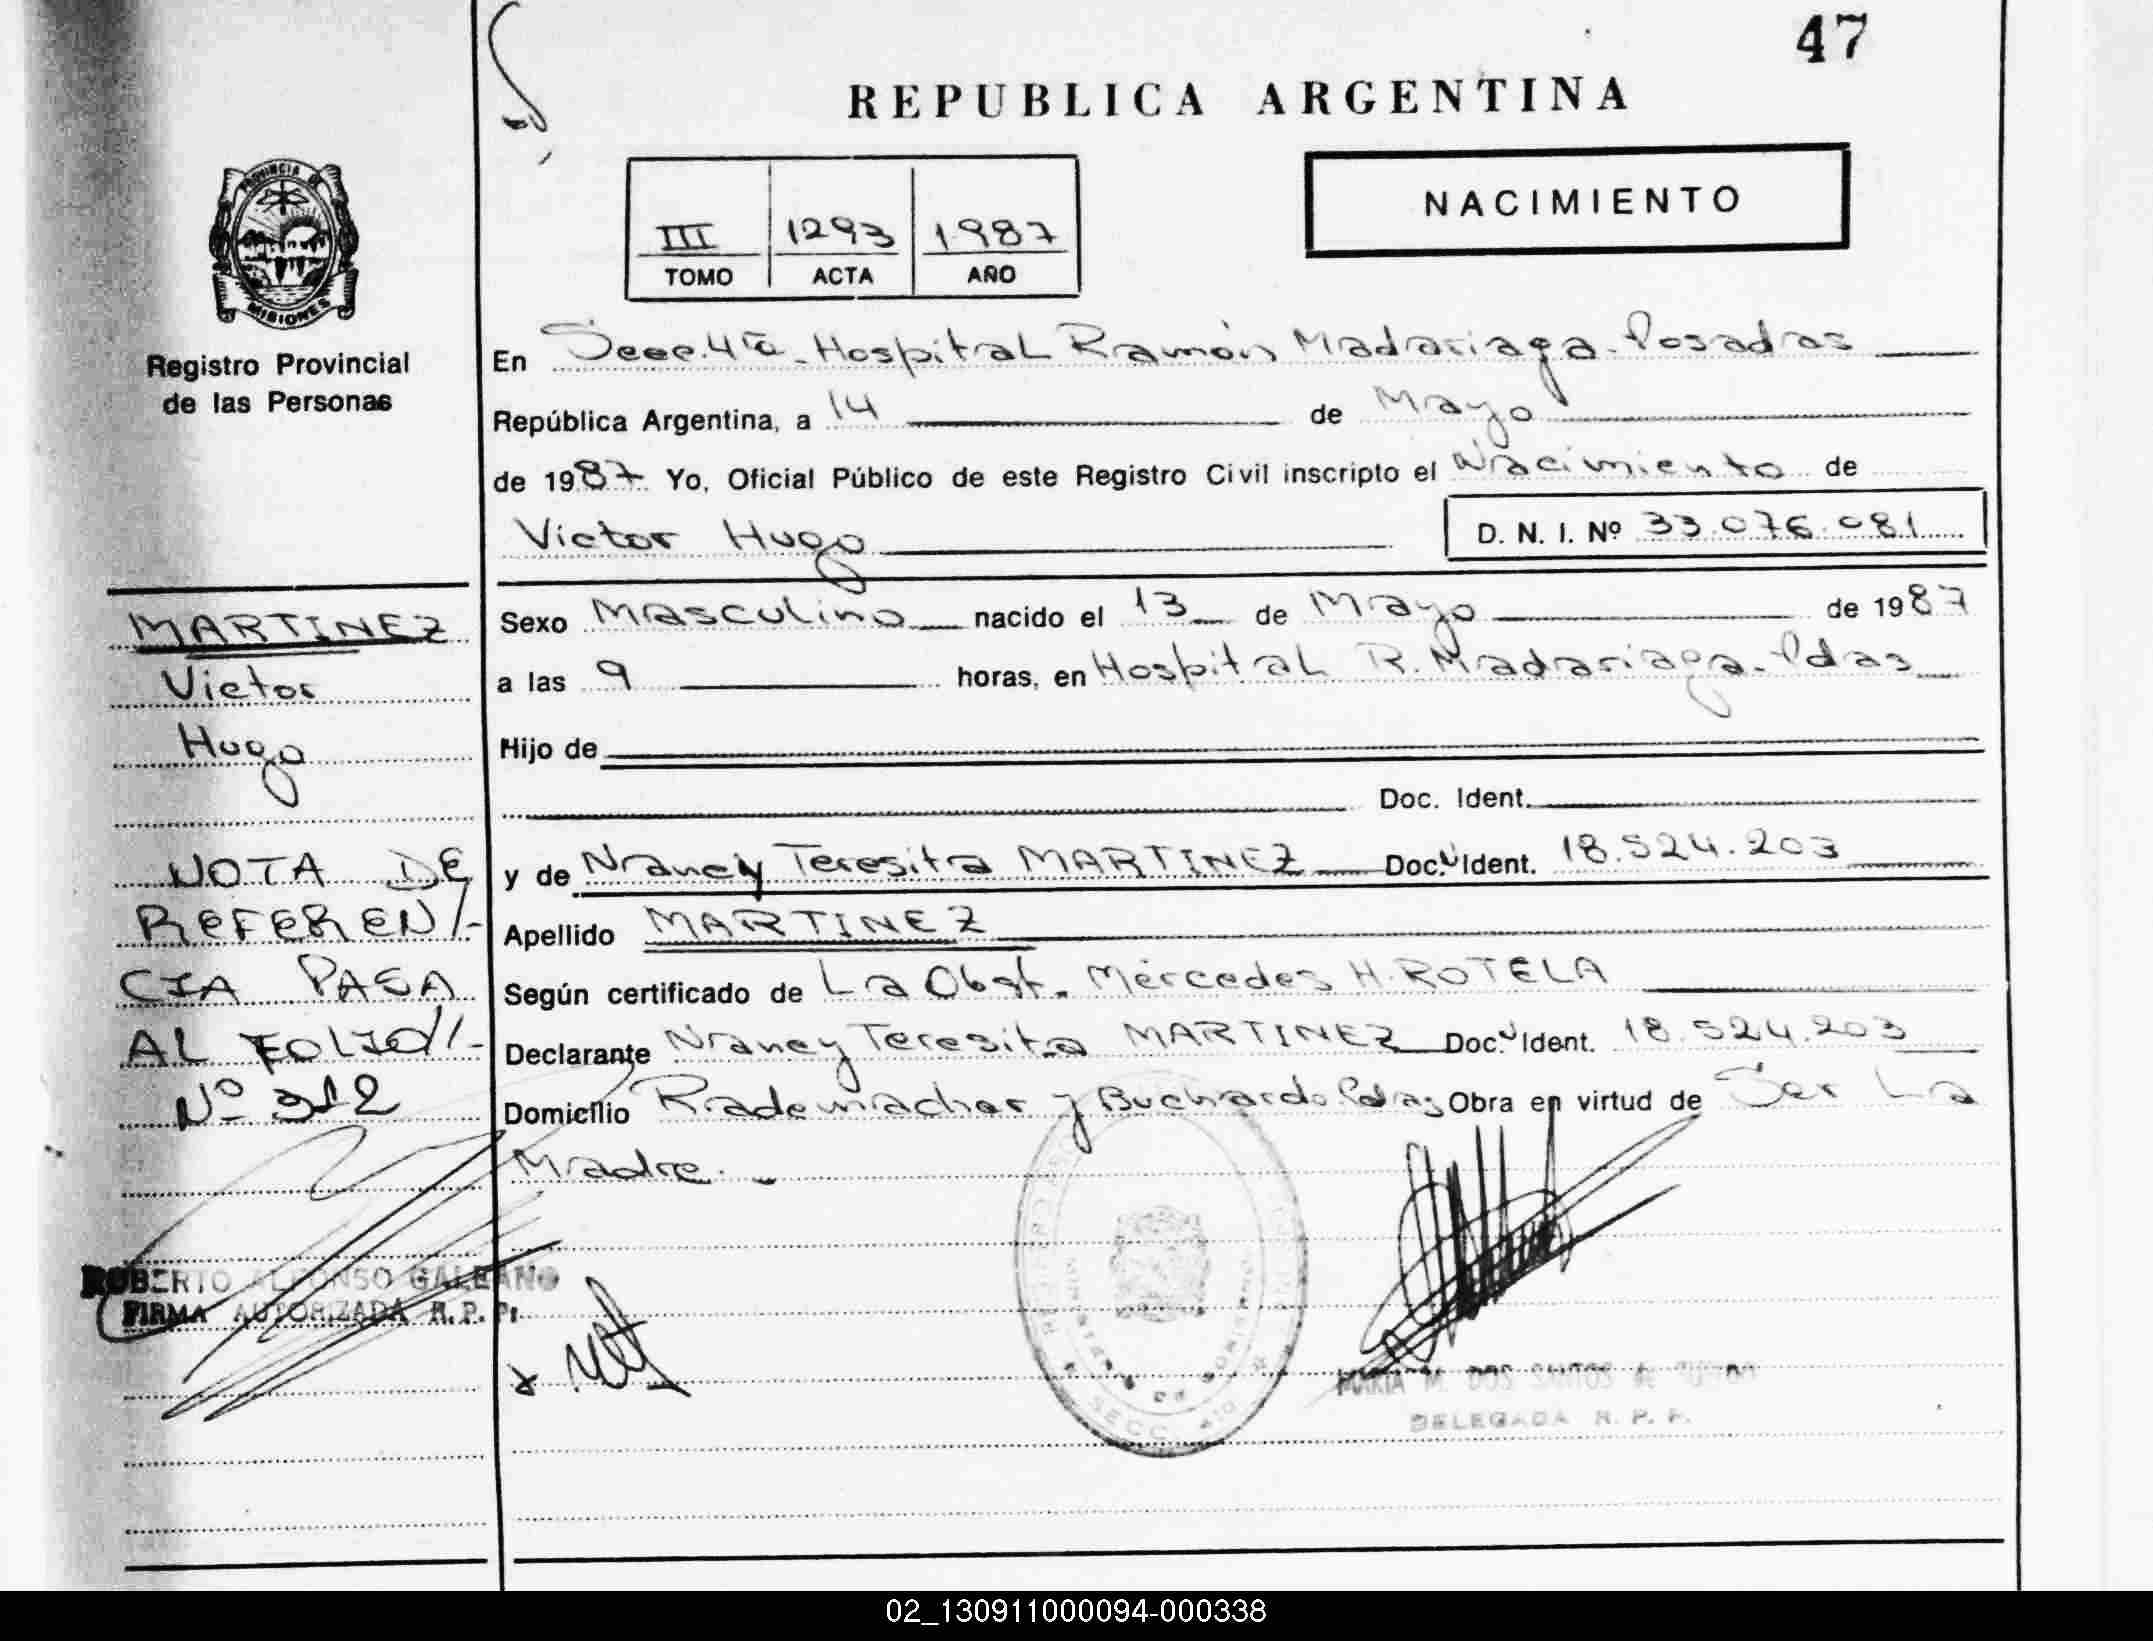 47
REPUBLICA ARGENTINA
PROVINCIA DE
MISIONES
Registro Provincial
de las Personas
III 1293 1987
TOMO ACTA AÑO
NACIMIENTO
En Secc. 4ta. Hospital Ramón Madariaga - Posadas
República Argentina, a 14 de Mayo
de 1987 Yo, Oficial Público de este Registro Civil inscripto el Nacimiento de
Victor Hugo D. N. I. Nº 33.076.081
Sexo Masculino nacido el 13 de Mayo de 1987
a las 9 horas, en Hospital R. Madariaga - Pdas
Hijo de
Doc. Ident.
y de Nancy Teresita MARTINEZ Doc. Ident. 18.524.203
Apellido MARTINEZ
Según certificado de La Obst. Mercedes H. ROTELA
Declarante Nancy Teresita MARTINEZ Doc. Ident. 18.524.203
Domicilio Rademacher y Buchardo Pdas Obra en virtud de Ser La
Madre.
MARTINEZ
Victor
Hugo
NOTA DE
REFEREN/-
CIA PASA
AL FOLIO//-
Nº 312
ROBERTO ALFONSO GALEANO
FIRMA AUTORIZADA R. P. P.
MARIA M. DOS SANTOS de
DELEGADA R. P. P.
SECC.
02_130911000094-000338